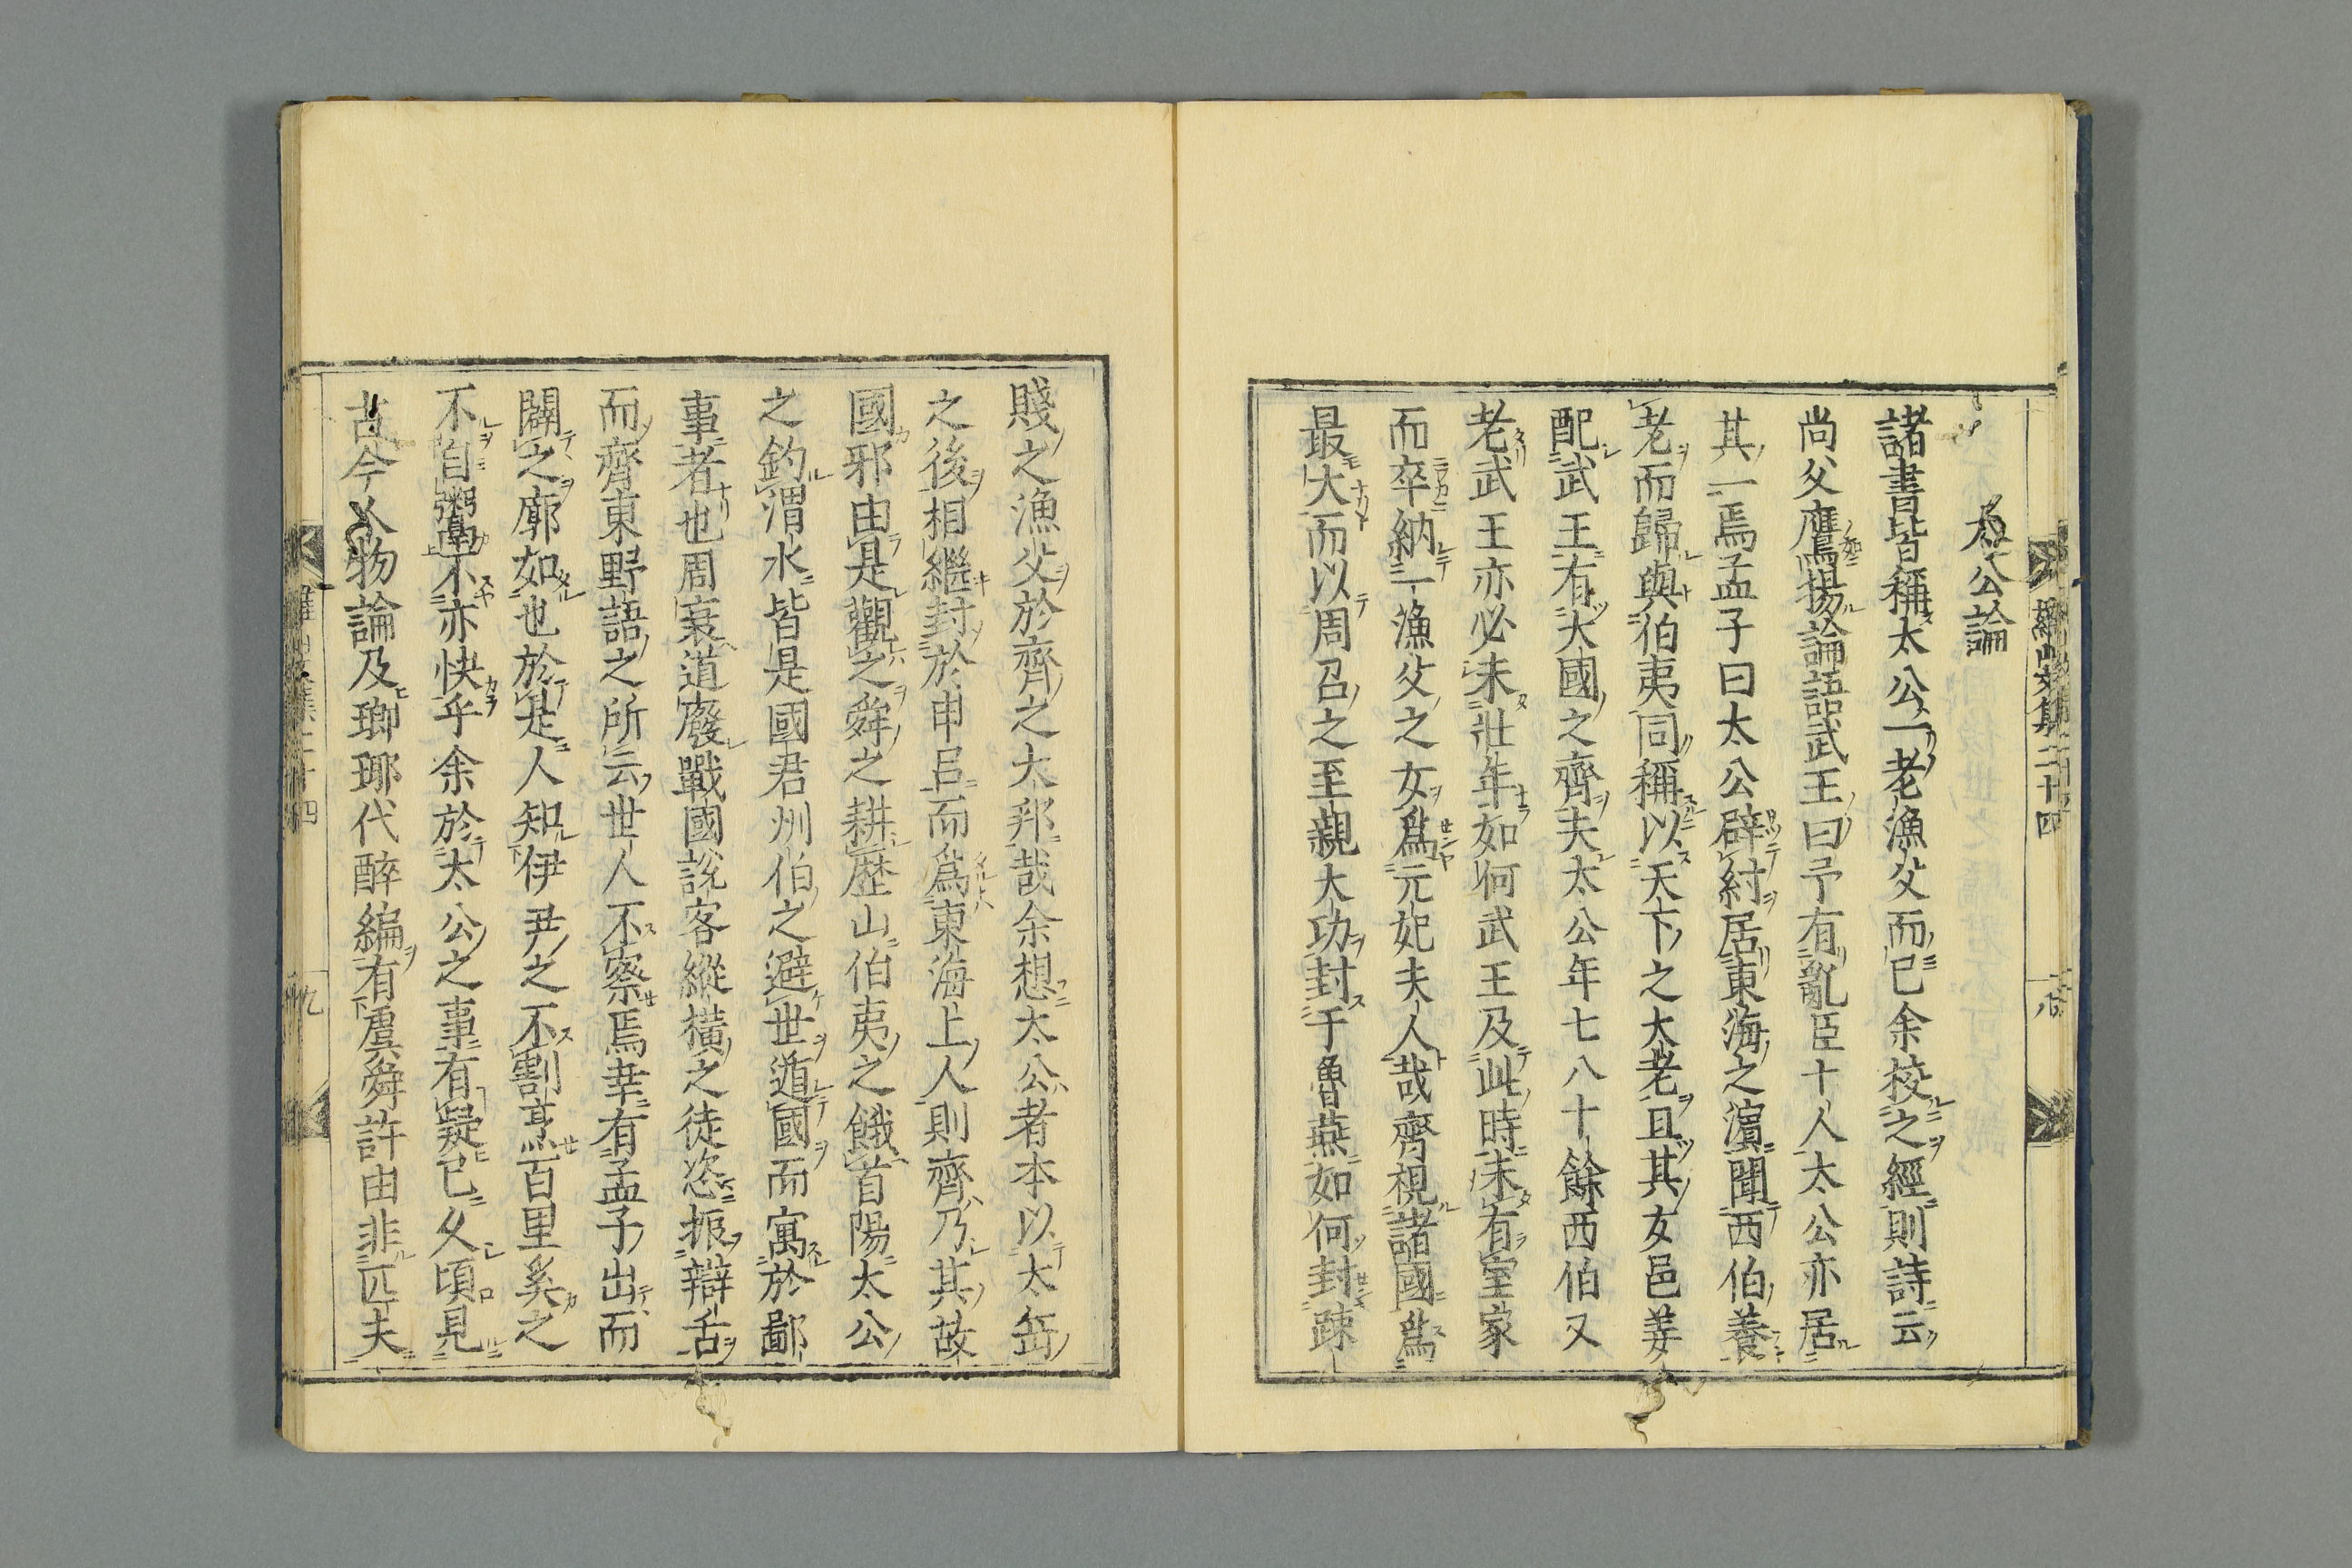 羅山文集二十四
八
太公論
諸書皆稱太公一老漁父而已余校之經則詩云
尚父鷹揚論語武王曰予有亂臣十人太公亦居
其一焉孟子曰太公辟紂居東海之濵聞西伯養
老而歸與伯夷同稱以天下之大老且其女邑姜
配武王有大國之齊夫太公年七八十餘西伯又
老武王亦必未壯年如何武王及此時未有室家
而卒納一漁父之女爲元妃夫人哉齊視諸國爲
最大而以周召之至親大功封于魯燕如何封疎
賤之漁父於齊之大邦哉余想太公者本以太岳
之後相繼封於申呂而爲東海上人則齊乃其故
國邪由是觀之舜之耕歷山伯夷之餓首陽太公
之釣渭水皆是國君州伯之避世遁國而寓於鄙
事者也周衰道廢戰國說客縱橫之徒恣振辯舌
而齊東野語之所云世人不察焉幸有孟子出而
闢之廓如也於是人知伊尹之不割烹百里奚之
不自鬻不亦快乎余於太公之事有疑已久頃見
古今人物論及瑯琊代醉編有虞舜許由非匹夫
羅山文集二十四
九